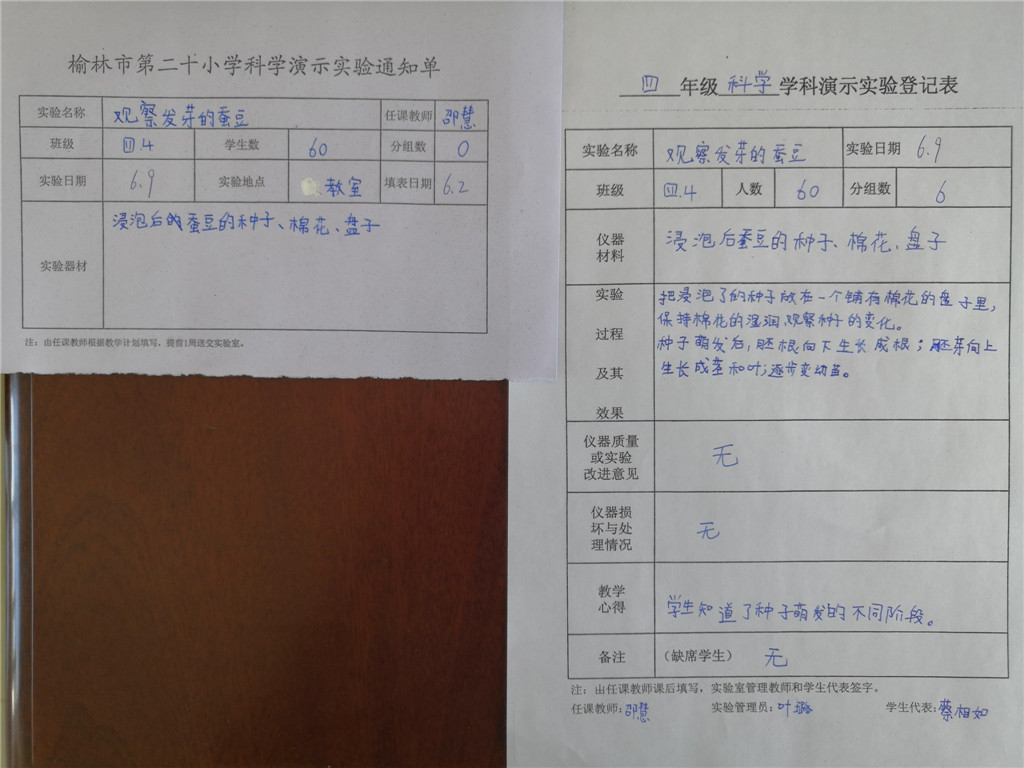 榆林市第二十小学科学演示实验通知单
实验名称 观察发芽的蚕豆 任课教师 邵慧
班级 四.4 学生数 60 分组数 0
实验日期 6.9 实验地点 教室 填表日期 6.2
实验器材 浸泡后的蚕豆的种子、棉花、盘子
注：由任课教师根据教学计划填写，提前1周送交实验室。
四 年级 科学 学科演示实验登记表
实验名称 观察发芽的蚕豆 实验日期 6.9
班级 四.4 人数 60 分组数 6
仪器
材料
浸泡后蚕豆的种子、棉花、盘子
实验
过程
及其
效果
把浸泡了的种子放在一个铺有棉花的盘子里，
保持棉花的湿润，观察种子的变化。
种子萌发后，胚根向下生长成根；胚芽向上
生长成茎和叶；逐步变幼苗。
仪器质量
或实验
改进意见
无
仪器损
坏与处
理情况
无
教学
心得
学生知道了种子萌发的不同阶段。
备注 （缺席学生） 无
注：由任课教师课后填写，实验室管理教师和学生代表签字。
任课教师：邵慧 实验管理员：叶璐 学生代表：蔡相如